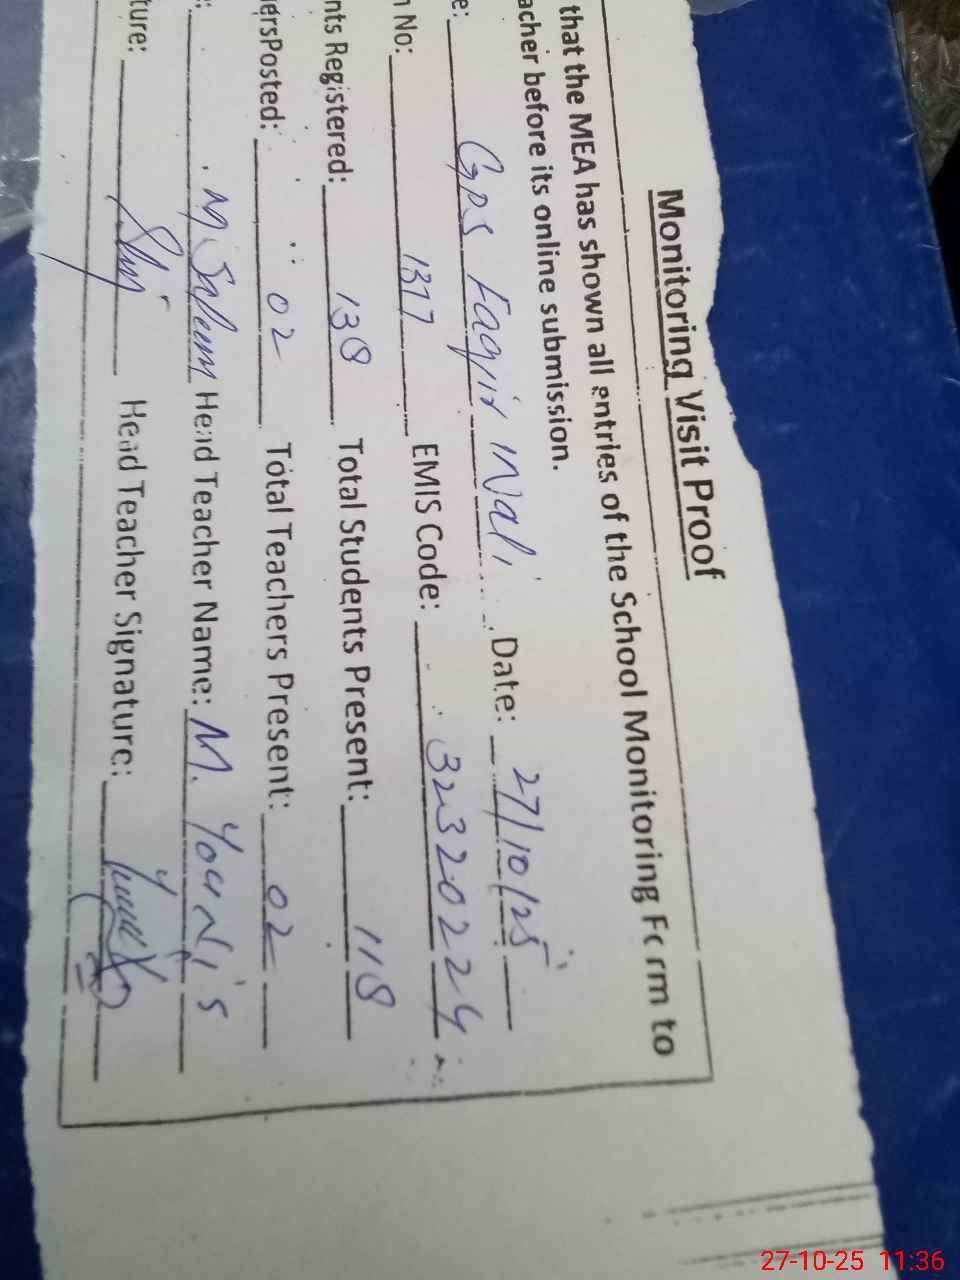 Monitoring Visit Proof
that the MEA has shown all entries of the School Monitoring Form to
acher before its online submission.
e: GPS Faqir Wali Date: 27/10/25
No: 1377 EMIS Code: 32320224
nts Registered: 138 Total Students Present: 118
ersPosted: 02 Total Teachers Present: 02
: M Saleem Head Teacher Name: M. Youni's
ture: Head Teacher Signature:
27-10-25 11:36